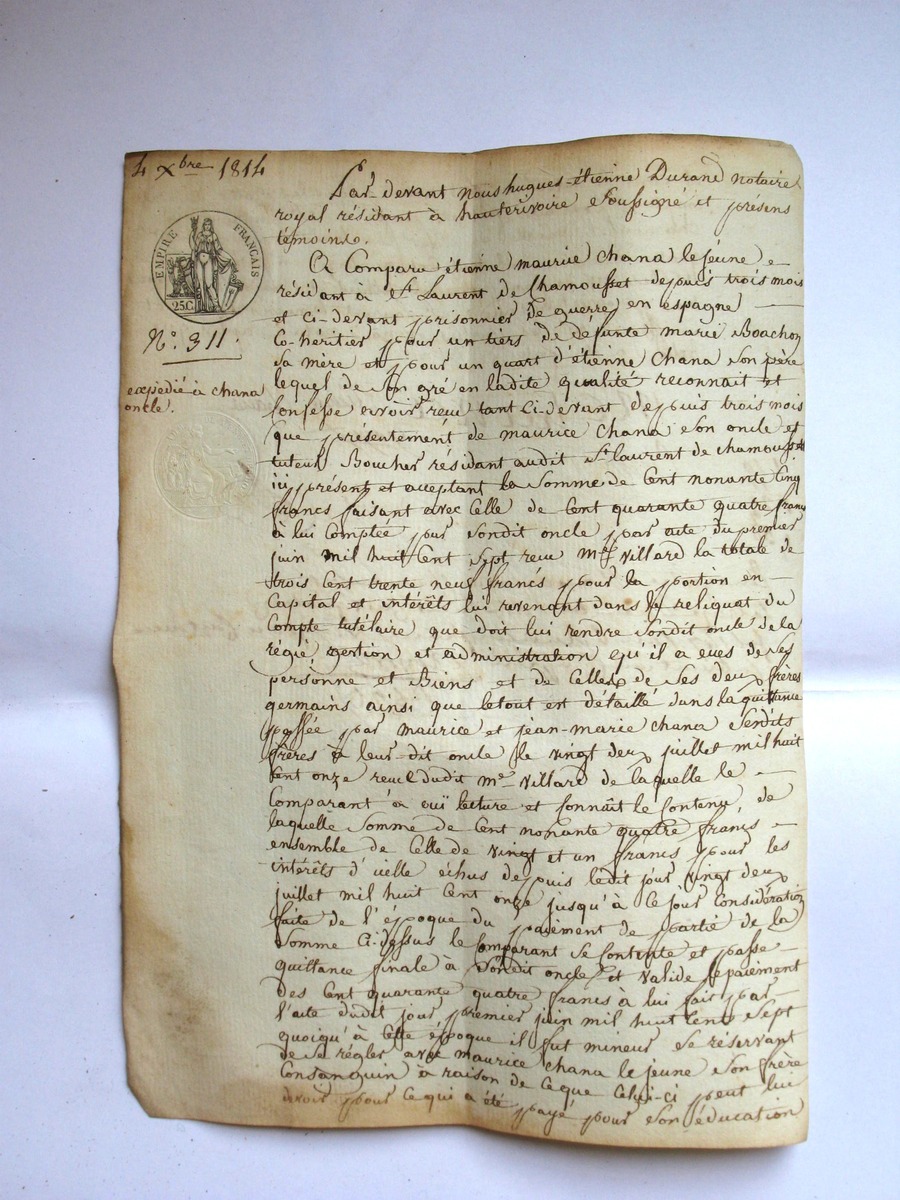 4 Xbre 1814
EMPIRE FRANÇAIS
25C
N.º 311.
expédié à chana
oncle.
Par-devant nous hugues-étienne Durand notaire
royal résidant à hauterivoire soussigné et présens
témoins.
A Comparu étienne maurice chana le jeune
résidant à St. Laurent de Chamousset depuis trois mois
et ci-devant prisonnier de guerre en espagne
Co-héritier pour un tiers de défunte marie Boachon
sa mère et pour un quart d'étienne Chana son père
lequel de son gré en ladite qualité reconnait et
Confesse avoir recu tant ci-devant depuis trois mois
que présentement de maurice Chana son oncle et
tuteur Boucher résidant audit St. laurent de chamousset
ici présent et acceptant la somme de Cent nonante Cinq
francs faisant avec Celle de Cent quarante quatre francs
à lui Comptée par sondit oncle par acte du premier
juin mil huit Cent sept recu Me. Villard la totale de
trois Cent trente neuf francs pour la portion en
Capital et intérêts lui revenant dans le reliquat du
Compte tutélaire que doit lui rendre sondit oncle de la
régie gestion et administration qu'il a eues de ses
personne et Biens et de Celles de ses deux frères
germains ainsi que letout est détaillé dans la quittance
passée par maurice et jean-marie chana sesdits
frères à leur-dit oncle le vingt deux juillet mil huit
Cent onze recue dudit me. Villard de laquelle le
Comparant a ouï lecture et Connaît le Contenu, de
laquelle somme de Cent nonante quatre francs
ensemble de Celle de vingt et un francs pour les
intérêts d'icelle échus depuis ledit jour vingt deux
juillet mil huit Cent onze jusqu'à Ce jour Considération
faite de l'époque du paiement de partie de la
somme Ci-dessus le Comparant se Contente et passe
quittance finale à sondit oncle et valide le paiement
des Cent quarante quatre francs à lui fait par
l'acte dudit jour premier juin mil huit Cent sept
quoiqu'à Cette époque il fut mineur se réservant
de se régler avec maurice chana le jeune son frère
Consanguin à raison de Ceque Celui-ci peut lui
devoir pour Ce qui a été payé pour son éducation